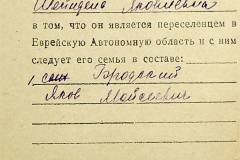 Яковлевна
в том, что он является переселенцем в
Еврейскую Автономную область и с ним
следует его семья в составе:
1 сын Городский
Яков Мойсеевич